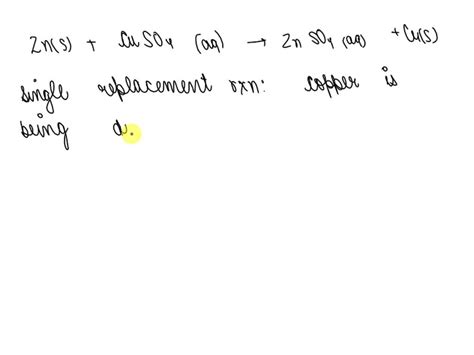 Zn(s) + CuSO4 (aq) → ZnSO4 (aq) + Cu(s)
single replacement rxn: copper is
being d.